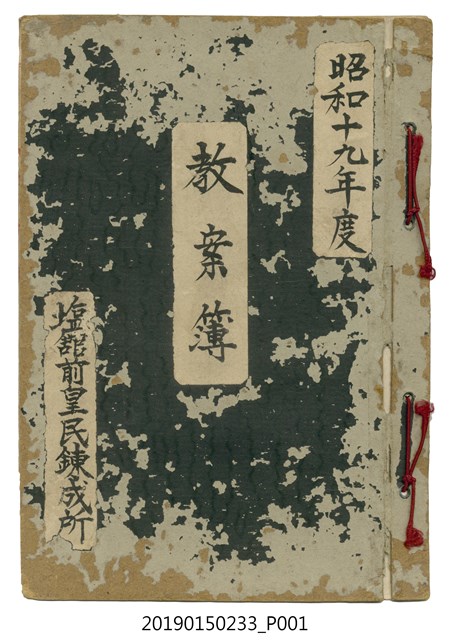 昭和十九年度
教案簿
塩館前皇民錬成所
20190150233_P001